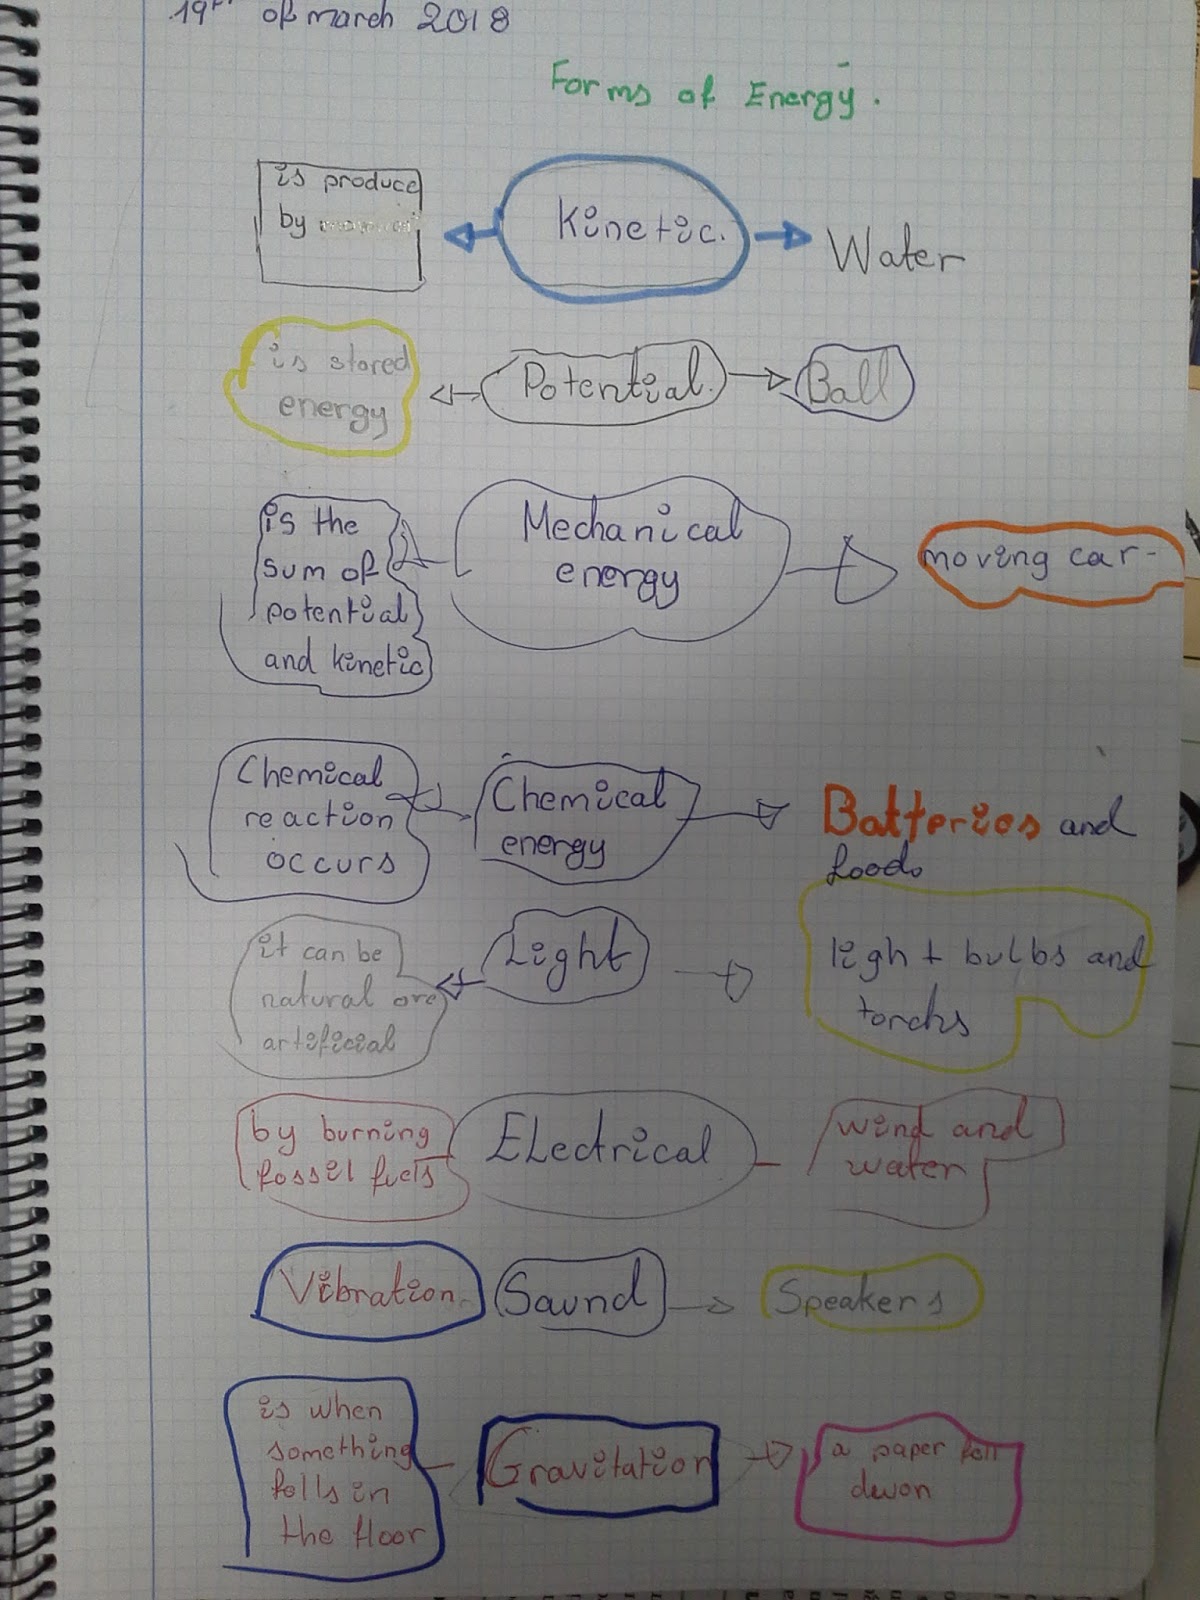 19th of march 2018
Forms of Energy.
is produce
by
Kinetic.
Water
is stored
energy
Potential.
Ball
is the
sum of
potential
and kinetic
Mechanical
energy
moving car-
Chemical
reaction
occurs
Chemical
energy
Batteries and
food.
it can be
natural ore
artificial
Light
light bulbs and
torchs
by burning
fossil fuels
ELectrical
wind and
water
Vibration.
Saund
Speakers
is when
something
falls in
the floor
Gravitation
a paper fell
dwon